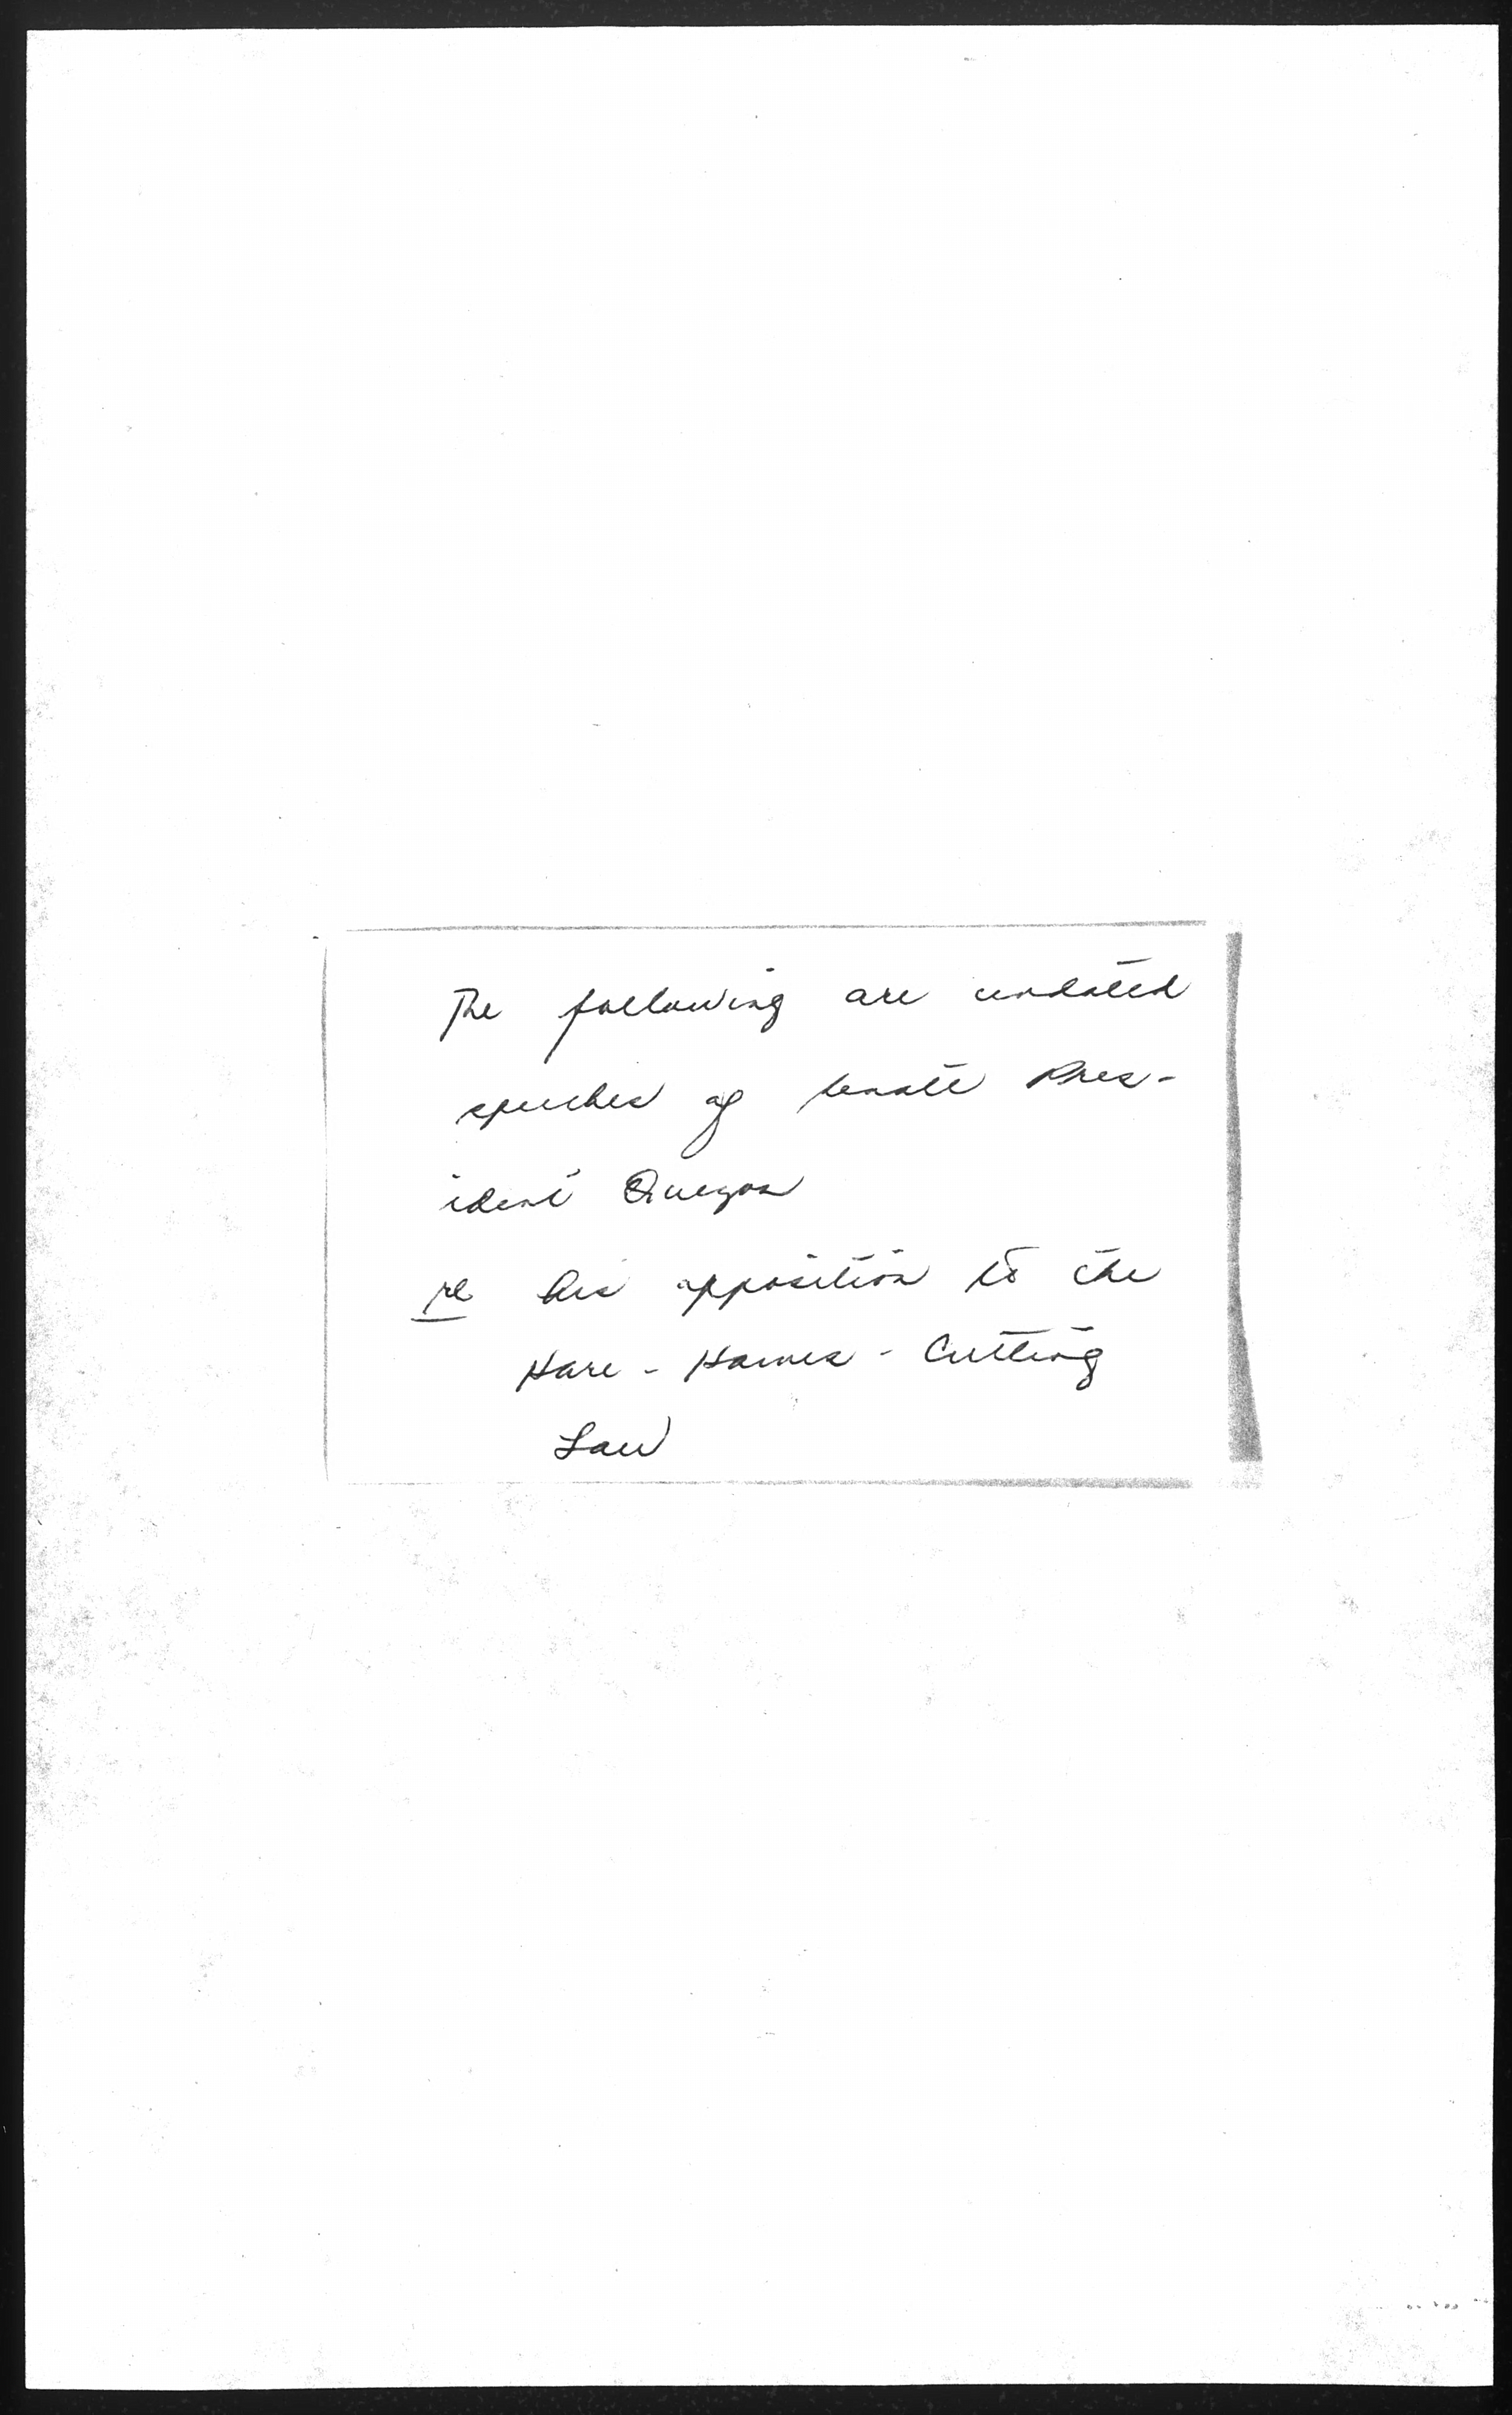 The following are undated
speeches of Senate Pres-
ident Quezon
re his opposition to the
Hare - Hawes - Cutting
Law